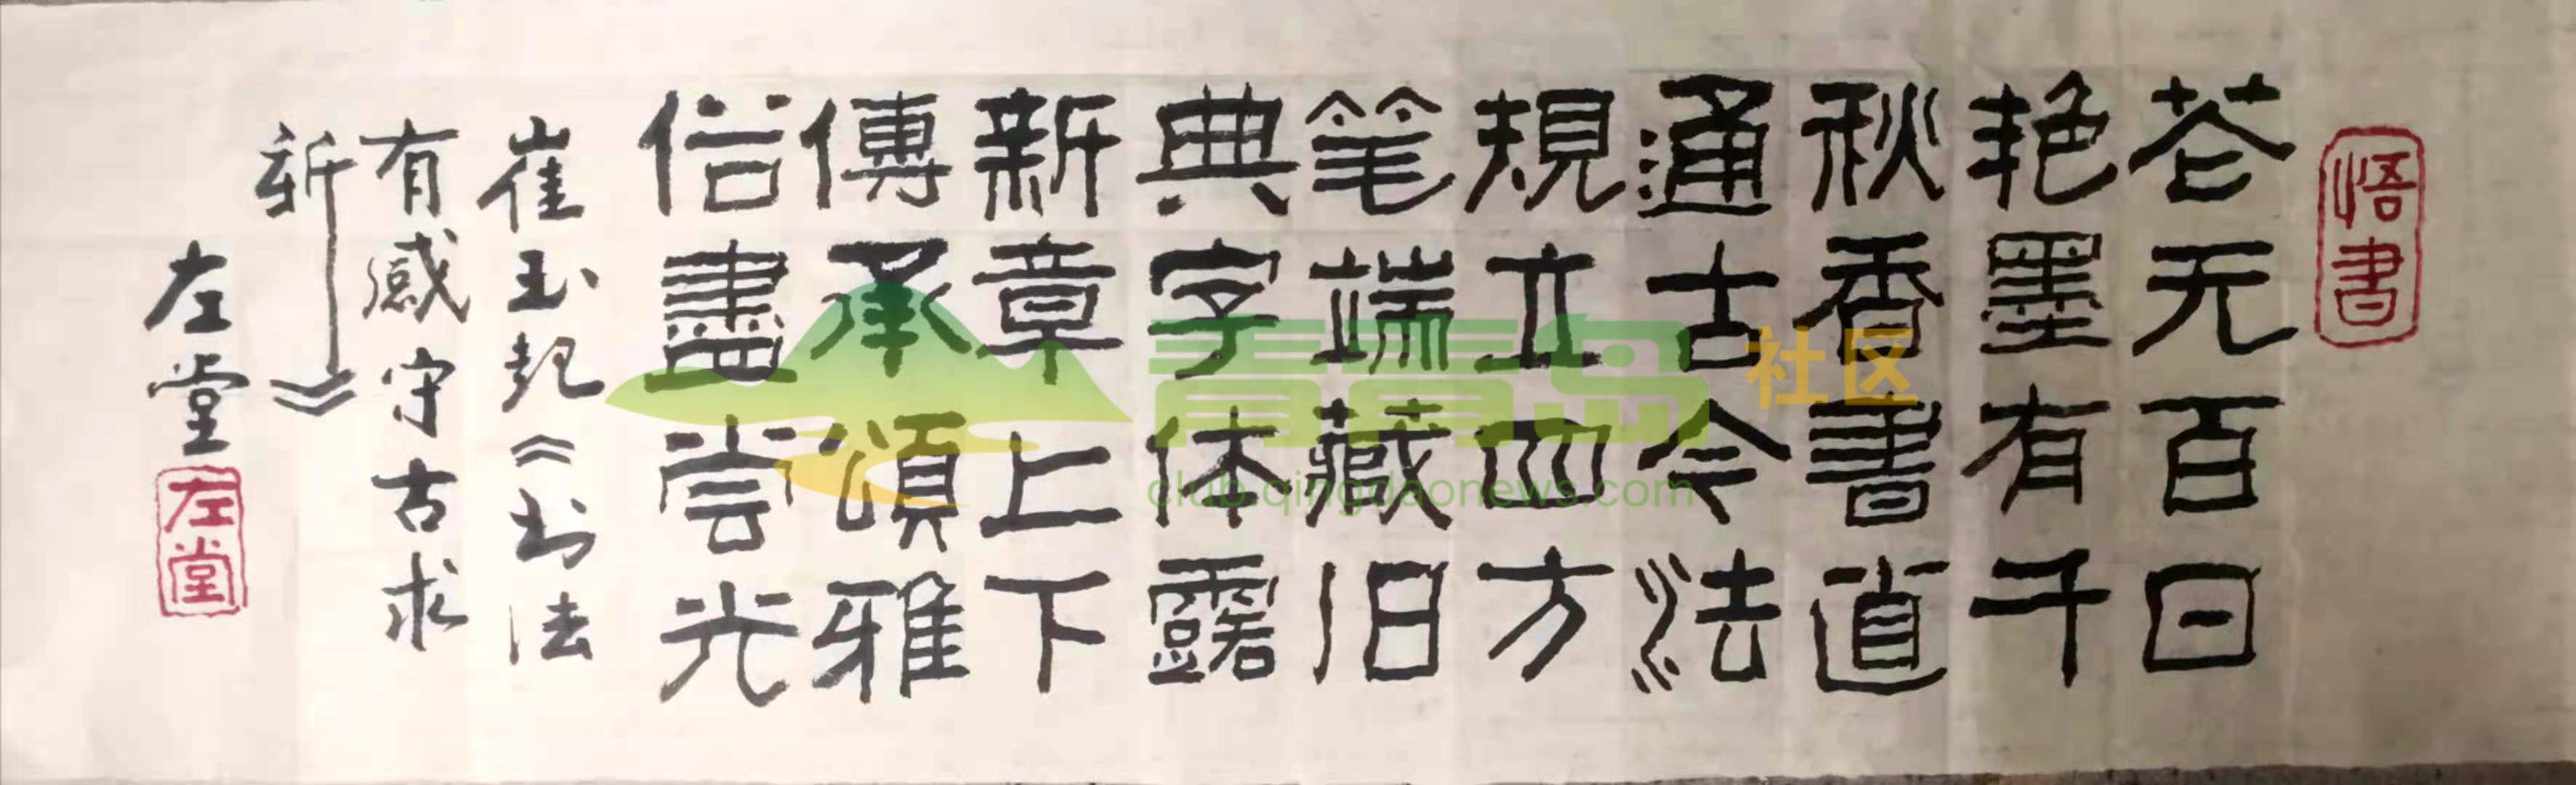 悟書
花无百日
艳墨有千
秋香書道
通古今法
規立四方
笔端藏旧
典字体露
新章上下
傳承頌雅
俗盡尝光
崔玉起《书法
有感守古求
新》
左堂
左堂
青青岛社区
club.qingdaonews.com